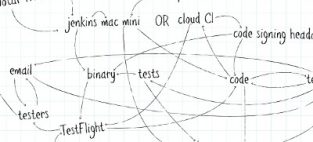 jenkins mac mini OR cloud CI
code signing
email binary tests code
testers
TestFlight